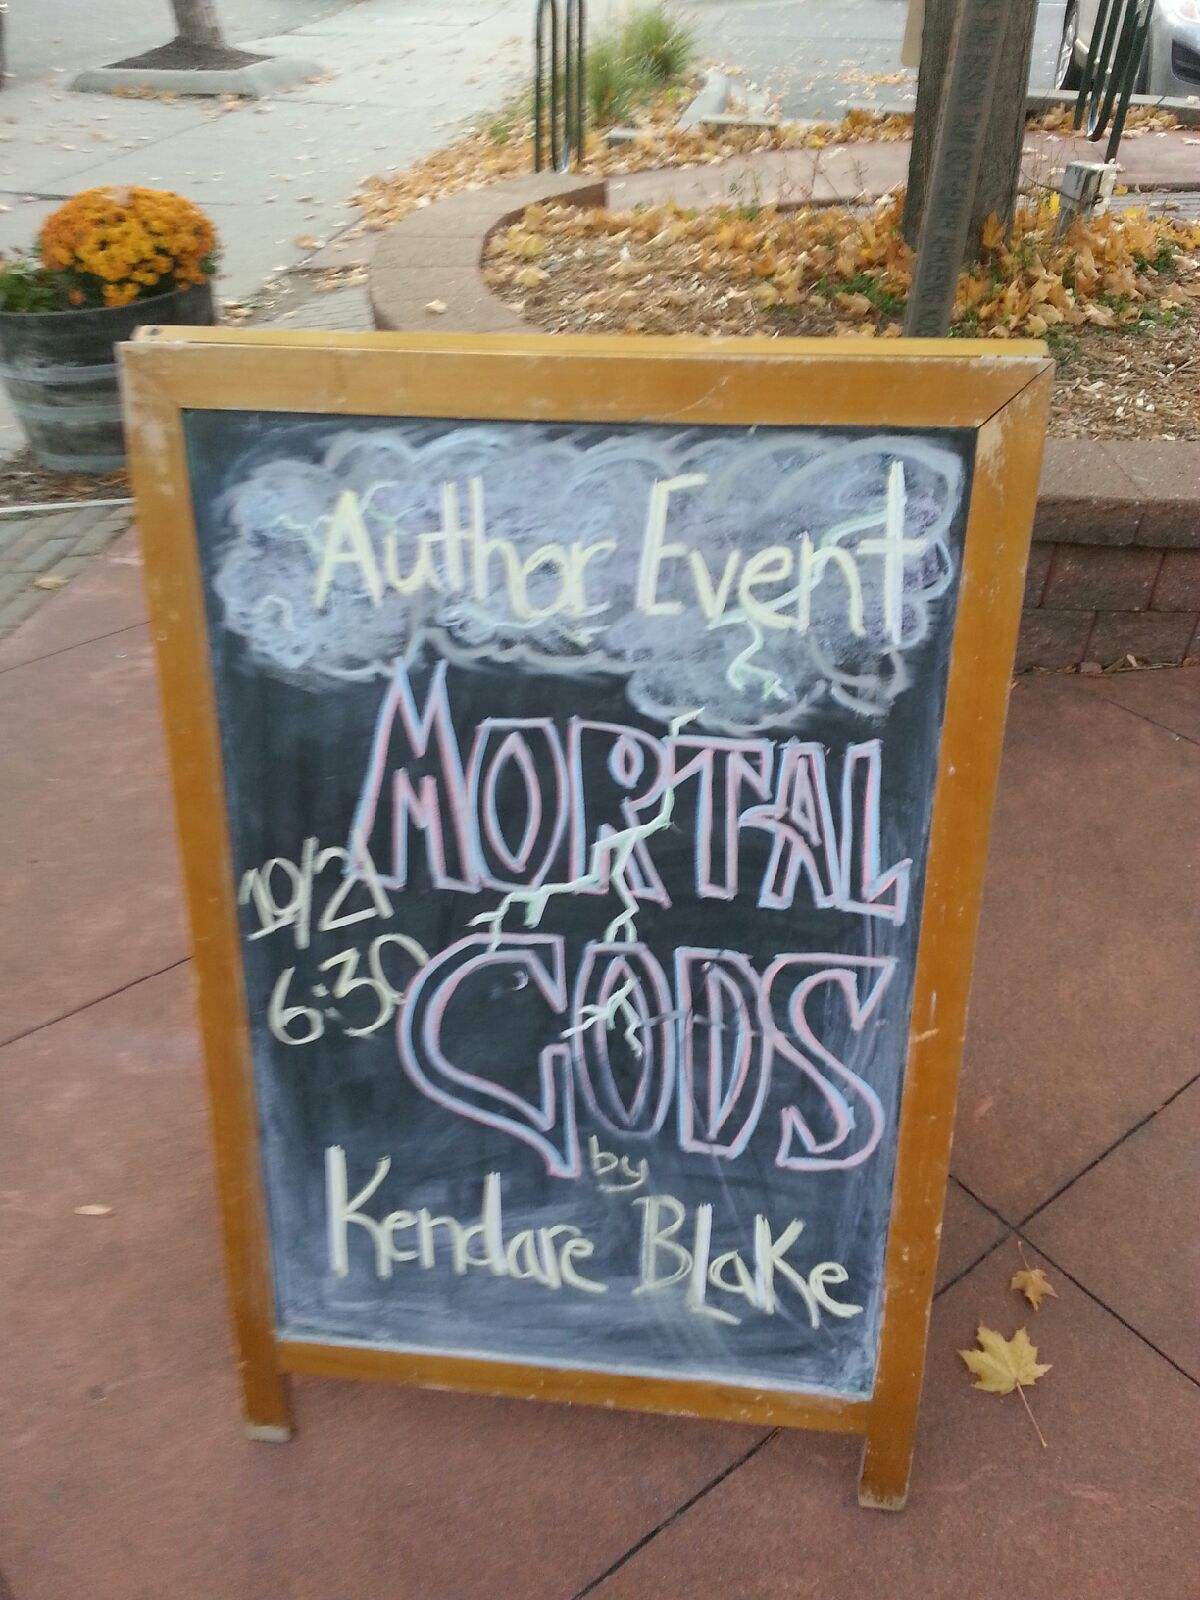 Author Event
MORTAL
10/21
6:30
GODS
by
Kendare BLaKe